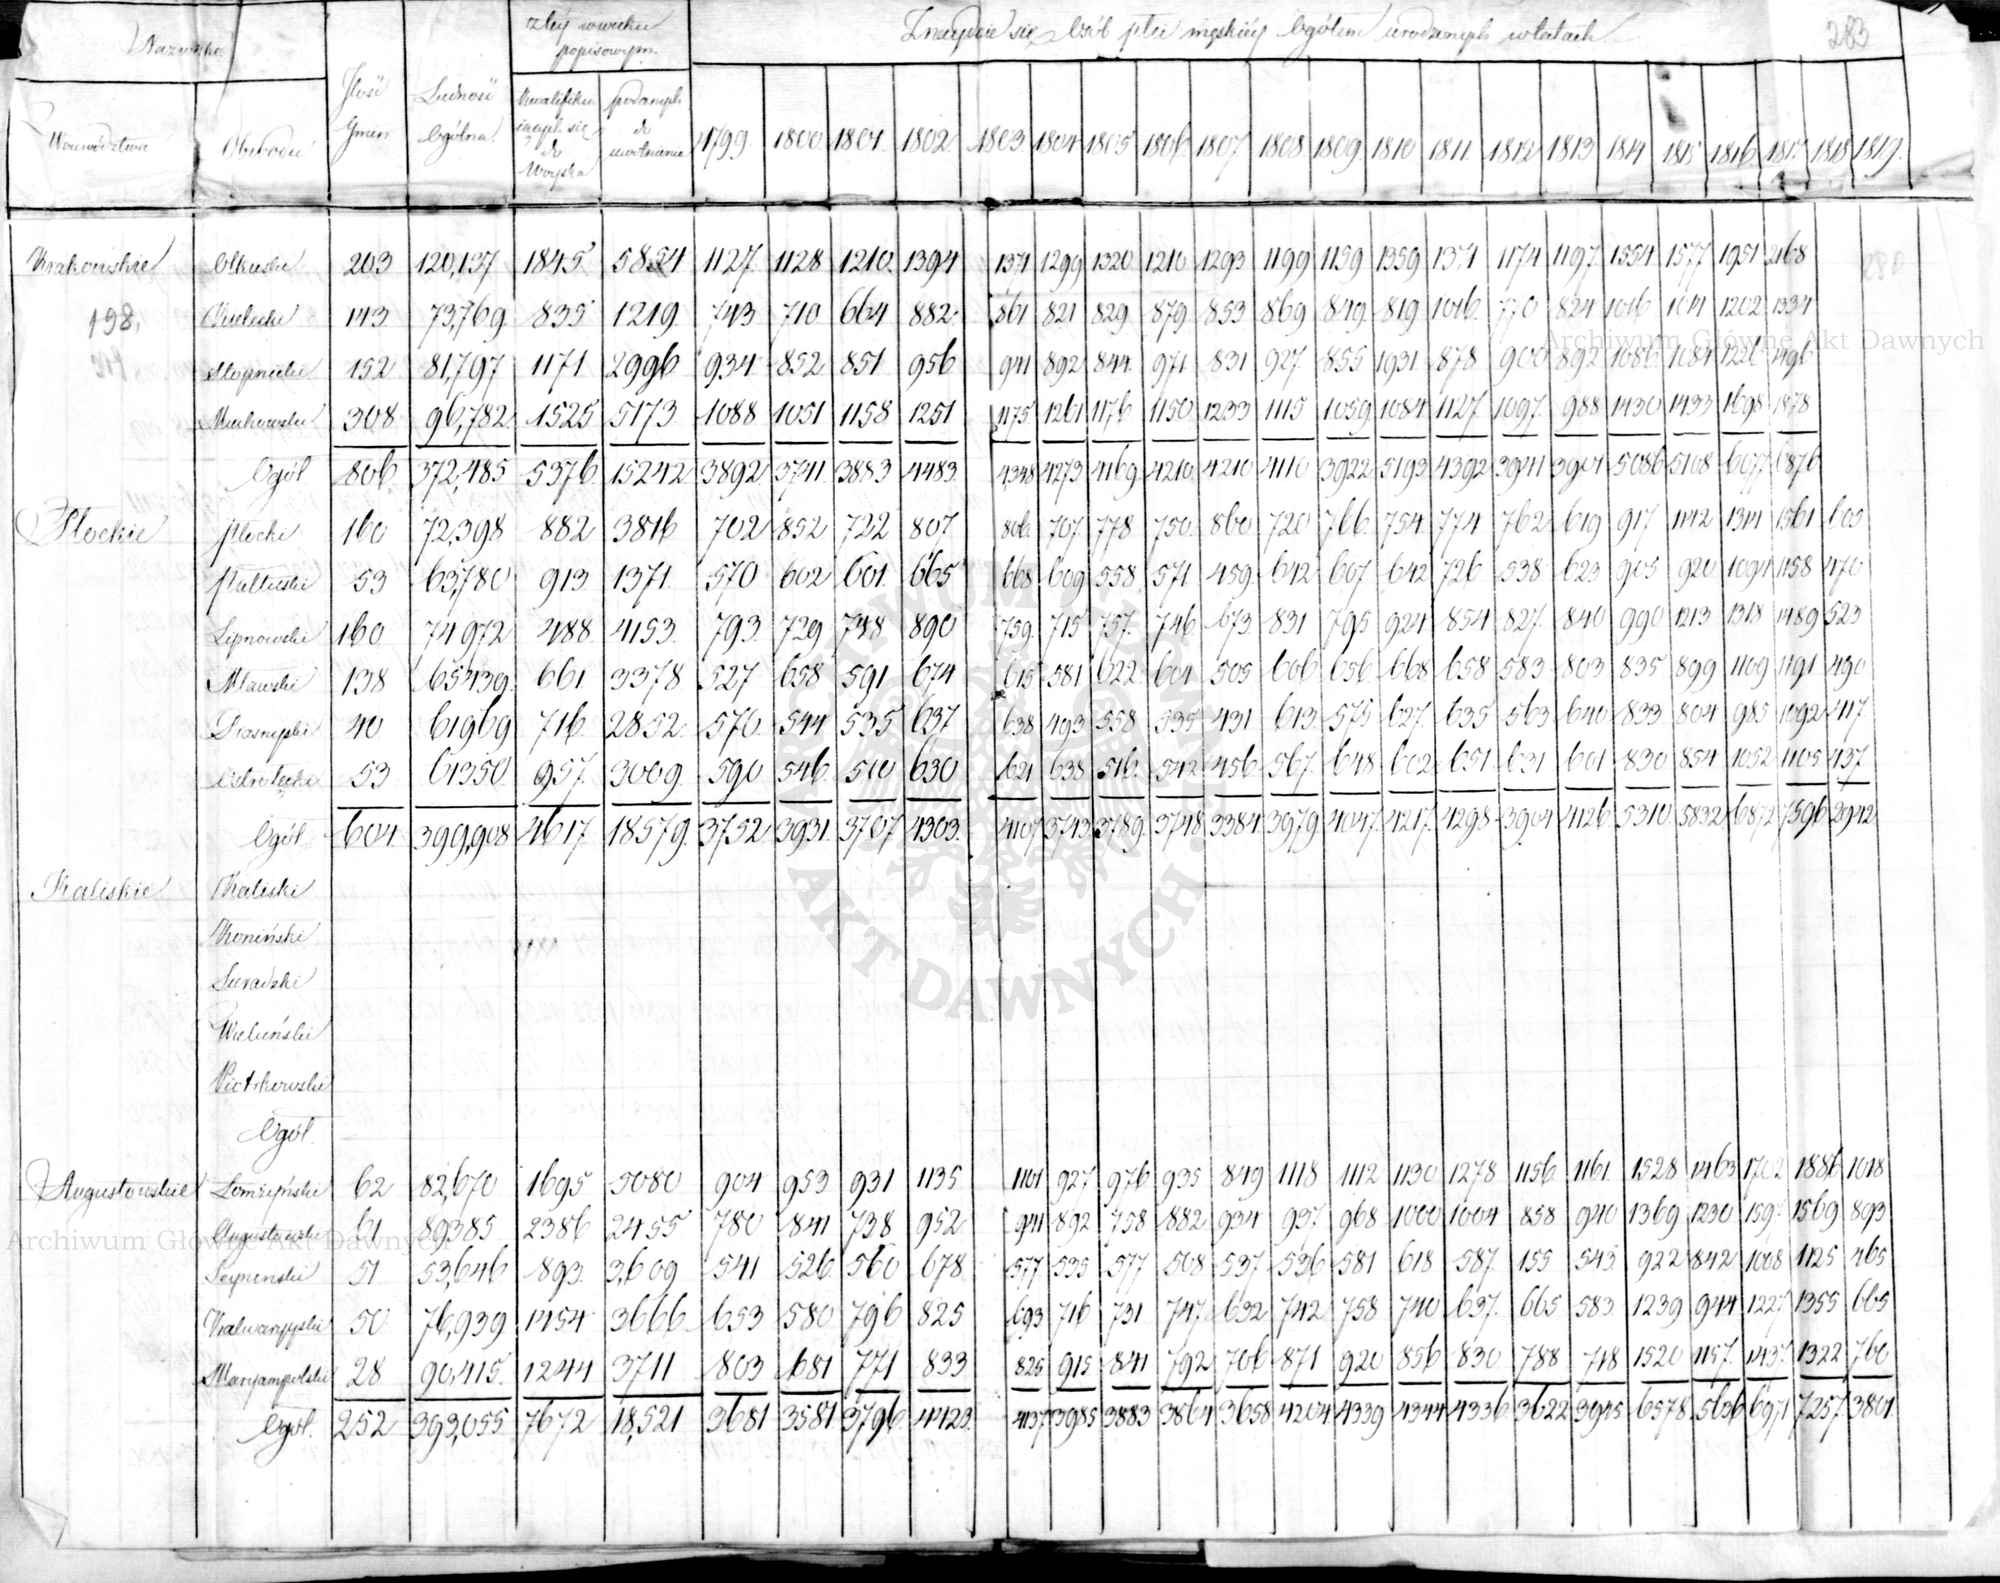 Nazwisko
Województwa
Obwodu
Ilość Gmin
Ludność Ogólna
z tey w wieku popisowym
kwalifikujących się do Woyska
podanych do uwolnienia
Znayduie się Osób płci męskiéy Ogółem urodzonych w latach
283
1799 1800 1801 1802 1803 1804 1805 1806 1807 1808 1809 1810 1811 1812 1813 1814 1815 1816 1817 1818 1819
Krakowskie Olkuski 203 120,137 1845 5854 1127 1128 1210 1394 1371 1299 1320 1210 1293 1199 1159 1359 1371 1174 1197 1554 1577 1951 2168
198 Kielecki 143 73,769 835 1219 743 710 664 882 861 821 829 879 853 869 849 819 1016 770 824 1016 1014 1202 1334
Stopnicki 152 81,797 1171 2996 934 852 851 956 941 892 844 971 831 927 855 1931 878 900 892 1086 1084 1226 1496
Miechowski 308 96,782 1525 5173 1088 1051 1158 1251 1175 1261 1176 1150 1233 1115 1059 1084 1127 1097 988 1430 1433 1698 1878
Ogół 806 372,485 5376 15242 3892 3741 3883 4483 4348 4273 4169 4210 4210 4110 3922 5193 4392 3941 3901 5086 5108 6077 6876
Płockie Płocki 160 72,398 882 3816 702 852 722 807 806 707 778 750 860 720 766 754 774 762 619 917 1142 1314 1561 605
Pułtuski 53 63,780 913 1371 570 602 601 665 668 609 558 571 459 642 607 642 726 538 623 905 920 1094 1158 470
Lipnowski 160 74972 488 4153 793 729 748 890 759 715 757 746 673 831 795 924 854 827 840 990 1213 1318 1489 523
Mławski 138 65439 661 3378 527 658 591 674 615 581 622 604 505 606 656 668 658 583 803 835 899 1109 1191 490
Prasnyski 40 61969 716 2852 570 544 535 637 638 493 558 535 431 613 575 627 635 563 640 833 804 985 1092 417
Ostrołęcki 53 61350 957 3009 590 546 510 630 621 638 516 542 456 567 648 602 651 631 601 830 854 1052 1105 437
Ogół 604 399,908 4617 18579 3752 3931 3707 4303 4107 3743 3789 3748 3384 3979 4047 4217 4298 3904 4126 5310 5832 6872 7596 2942
Kaliskie Kaliski
Koniński
Sieradzki
Wieluński
Piotrkowski
Ogół
Augustowskie Łomżyński 62 82,670 1695 5080 904 953 931 1135 1101 927 976 935 849 1118 1112 1130 1278 1156 1161 1528 1463 1702 1886 1018
Augustowski 61 89385 2386 2455 780 841 738 952 941 892 758 882 934 937 968 1000 1004 858 940 1369 1230 1597 1569 893
Seynenski 51 53,646 893 3,609 541 526 560 678 577 535 577 508 537 536 581 618 587 155 543 922 842 1008 1125 465
Kalwaryyski 50 76,939 1454 3666 653 580 796 825 693 716 731 747 632 742 758 740 637 665 583 1239 944 1227 1355 665
Maryampolski 28 90,415 1244 3711 803 681 771 833 825 915 841 792 706 871 920 856 830 788 718 1520 1157 1437 1322 760
Ogół 252 393,055 7672 18,521 3681 3581 3,796 4423 4137 3985 3883 3864 3658 4204 4339 4344 4336 3622 3945 6578 5636 6971 7257 3801
Archiwum Główne Akt Dawnych
Archiwum Główne Akt Dawnych
ARCHIWUM GŁÓWNE AKT DAWNYCH